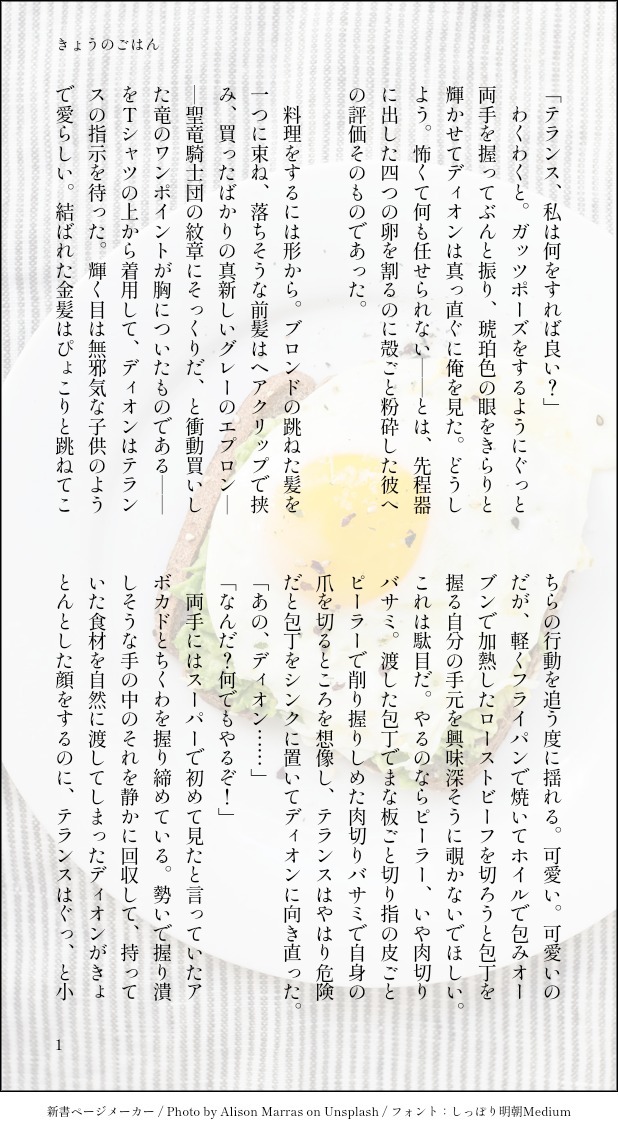 きょうのごはん
「テランス、私は何をすれば良い?」
わくわくと。ガッツポーズをするようにぐっと
両手を握ってぶんと振り、琥珀色の眼をきらりと
輝かせてディオンは真っ直ぐに俺を見た。どうし
よう。怖くて何も任せられない――とは、先程器
に出した四つの卵を割るのに殻ごと粉砕した彼へ
の評価そのものであった。
料理をするには形から。ブロンドの跳ねた髪を
一つに束ね、落ちそうな前髪はヘアクリップで挟
み、買ったばかりの真新しいグレーのエプロン―
―聖竜騎士団の紋章にそっくりだ、と衝動買いし
た竜のワンポイントが胸についたものである――
をTシャツの上から着用して、ディオンはテラン
スの指示を待った。輝く目は無邪気な子供のよう
で愛らしい。結ばれた金髪はぴょこりと跳ねてこ
ちらの行動を追う度に揺れる。可愛い。可愛いの
だが、軽くフライパンで焼いてホイルで包みオー
ブンで加熱したローストビーフを切ろうと包丁を
握る自分の手元を興味深そうに覗かないでほしい。
これは駄目だ。やるのならピーラー、いや肉切り
バサミ。渡した包丁でまな板ごと切り指の皮ごと
ピーラーで削り握りしめた肉切りバサミで自身の
爪を切るところを想像し、テランスはやはり危険
だと包丁をシンクに置いてディオンに向き直った。
「あの、ディオン……」
「なんだ?何でもやるぞ!」
両手にはスーパーで初めて見たと言っていたア
ボカドとちくわを握り締めている。勢いで握り潰
しそうな手の中のそれを静かに回収して、持って
いた食材を自然に渡してしまったディオンがきょ
とんとした顔をするのに、テランスはぐっ、と小
1
新書ページメーカー / Photo by Alison Marras on Unsplash / フォント：しっぽり明朝Medium